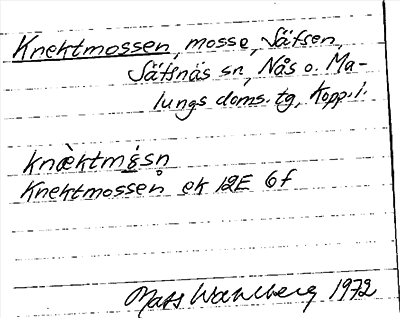 Knektmossen, mosse, Säfsen,
Säfsnäs sn, Nås o. Ma-
lungs doms. tg, Kopp. l.
Knektmossen ek 12E 6f
Mats Wahlberg 1972